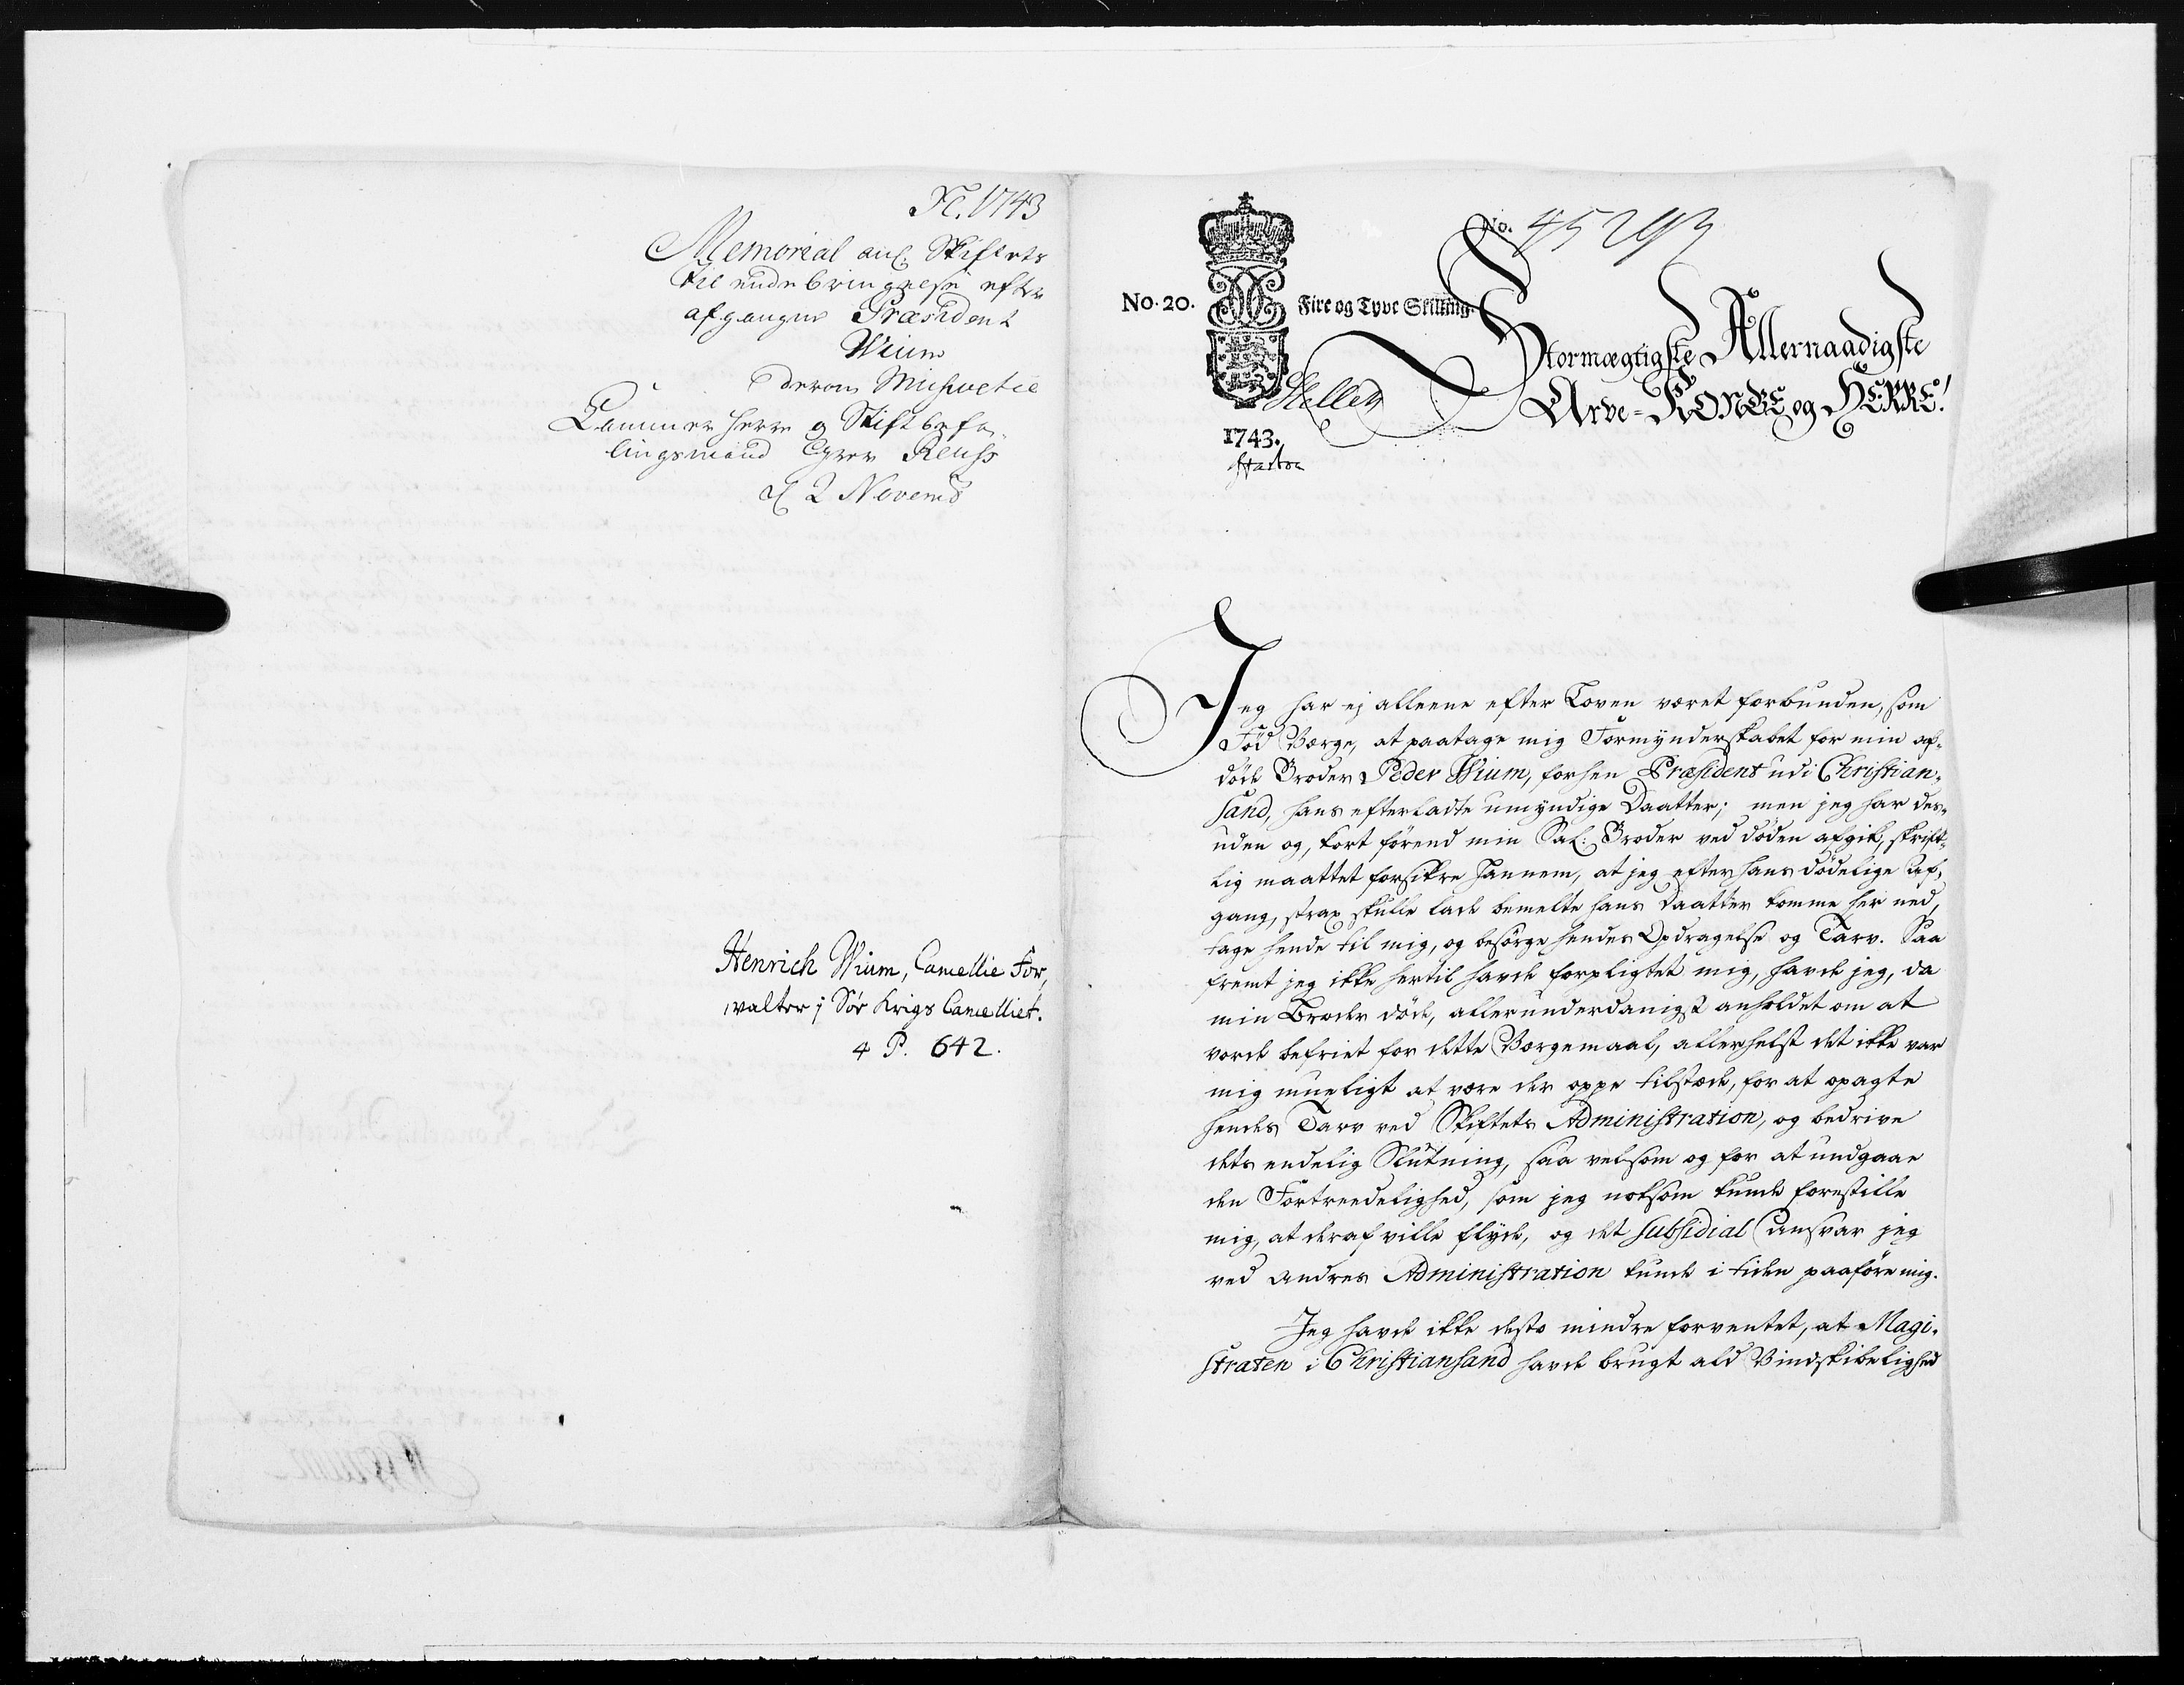 1743
Memorial anl: Skiftets
til endebringelse efter
afgangne Præsident
Wium
derom Missive til
Cammer Herre og Stiftbefa-
lingsmand Reuss
d 2 Novemb
Henrich Wium, Cancellie For,
valter j Søe Krigs Cancelliet.
4 P. 642.
No. 45293
No. 20. Fire og Tyve Skilling.
Stormægtigste Allernaadigste
Arve-KONGE og HERRE!
1743.
Jeg har ej alleene efter Loven været forbunden, som
Fød Værge, at paatage mig Formynderskabet for min af-
døde Broder Peder Wium, forhen Præsident udi Christian-
sand, hans efterladte umyndige Daatter; men jeg har des-
uden og, kort førend min Sal: Broder ved døden afgik, skrift-
lig maattet forsikre hannem, at jeg efter hans dødelige Af-
gang, strax skulle lade bemelte hans Daatter komme her ned,
tage hende til mig, og besørge hendes Opdragelse og Tarv. Saa
fremt jeg ikke hertil havde forpligtet mig, havde jeg, da
min Broder døde, allerunderdanigst anholdet om at
vorde befriet for dette Værgemaal, allerhelst det ikke var
mig mueligt at være der oppe tilstæde, for at opagte
hendes Tarv ved Skiftets Administration, og bedrive
dets endelig Slutning, saa velsom og for at undgaae
den Fortreedelighed, som jeg noksom kunde forestille
mig, at deraf ville flyde, og det Subsidial Ansvar jeg
ved andres Administration kunde i tiden paaføre mig.
Jeg havde ikke desto mindre forventet, at Magi-
straten i Christiansand havde brugt ald Vindskibelighed